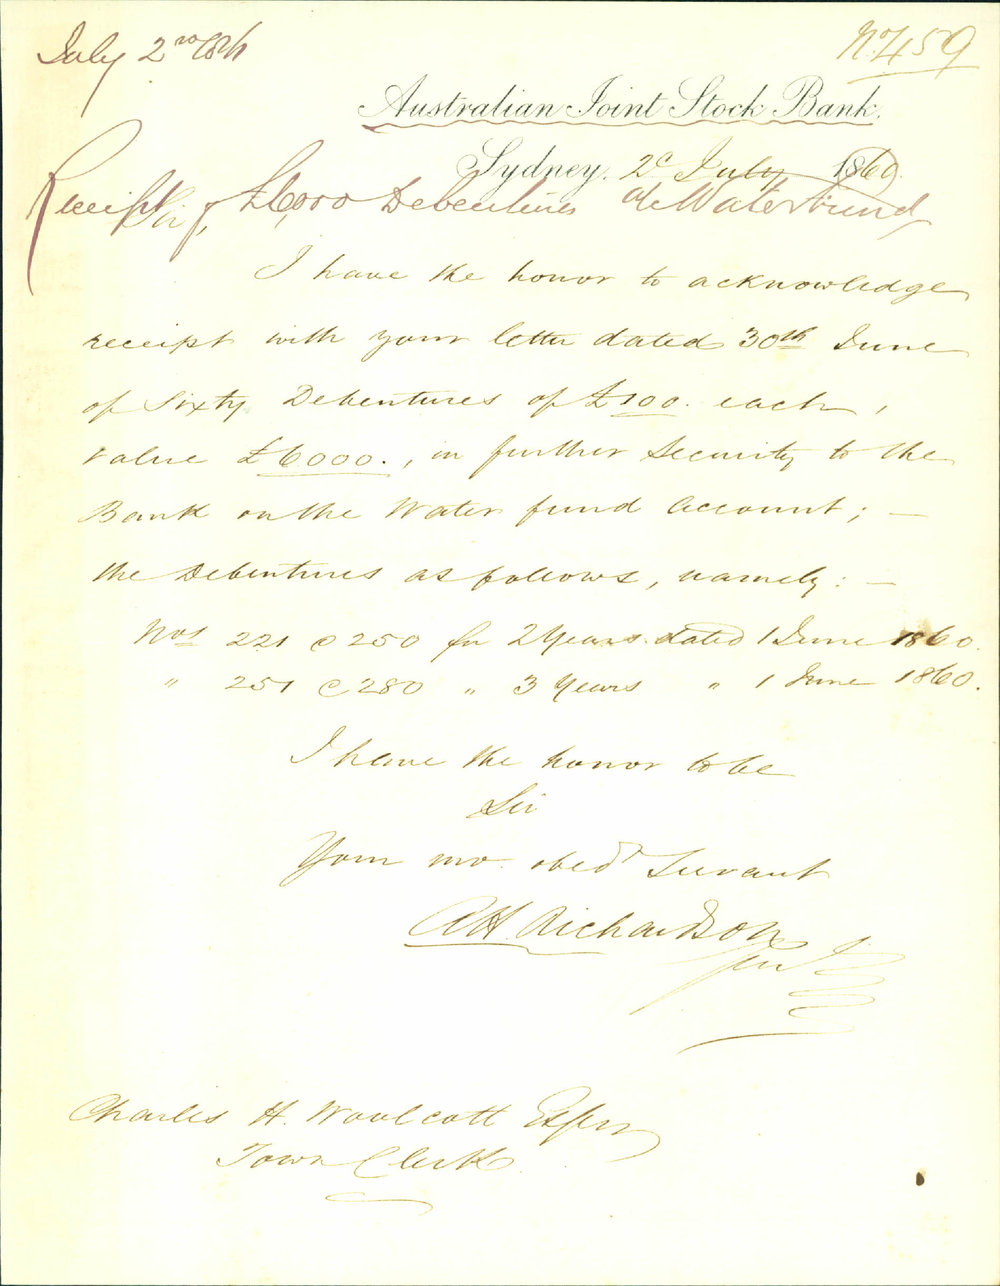 July 2nd 60
No. 459
Australian Joint Stock Bank.
Sydney. 2d July 1860.
Receipt of £6000 Debentures a/c Water Fund
Sir,
I have the honor to acknowledge
receipt with your letter dated 30th June
of Sixty Debentures of £100. each,
value £6000., in further Security to the
Bank on the Water fund Account; —
the Debentures as follows, namely: —
Nos 221 @ 250 for 2 Years dated 1 June 1860.
" 251 @ 280 " 3 Years " 1 June 1860.
I have the honor to be
Sir
Your mo. obedt Servant
A H. Richardson
Charles H. Woolcott Esqr
Town Clerk